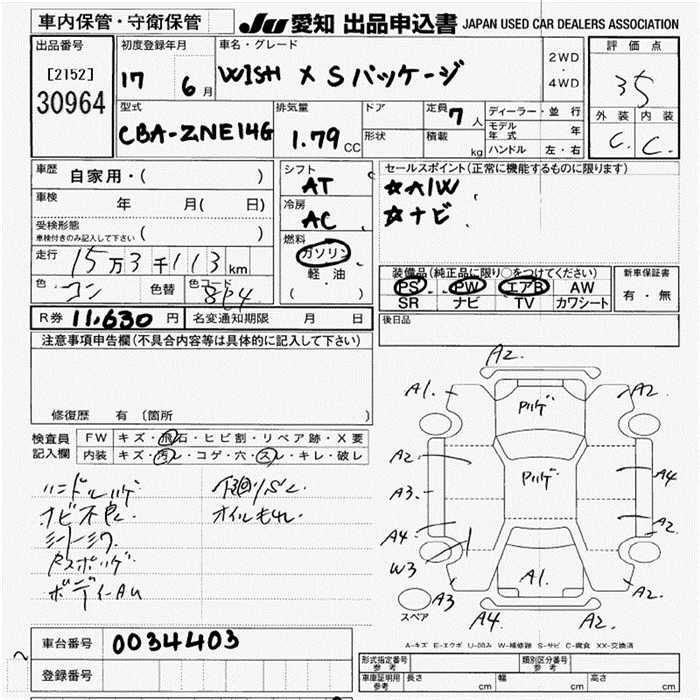 車内保管・守衛保管
JU 愛知 出品申込書 JAPAN USED CAR DEALERS ASSOCIATION
出品番号
[2152]
30964
初度登録年月
17 6月
車名・グレード
WISH X Sパッケージ
2WD
・
4WD
評価点
35
外装 内装
C. C.
型式
CBA-ZNE14G
排気量
1.79 CC
ドア
形状
定員 7人
積載 kg
ディーラー・並行
モデル年式 年
ハンドル 左・右
車歴 自家用・( )
車検 年 月( 日)
受検形態
車検付きのみ記入して下さい ( )
走行 15万3千113km
色 コン 色替 色コード 8P4
シフト
AT
冷房
AC
燃料
ガソリン
軽油
( )
セールスポイント(正常に機能するものに限ります)
☆A/W
☆ナビ
装備品(純正品に限り○をつけてください)
PS PW エアB AW
SR ナビ TV カワシート
新車保証書
有・無
R券 11,630円 名変通知期限 月 日
後日品
注意事項申告欄(不具合内容等は具体的に記入して下さい)
修復歴 有〔箇所 〕
検査員
記入欄
FW キズ・飛石・ヒビ割・リペア跡・X要
内装 キズ・汚レ・コゲ・穴・スレ・キレ・破レ
ハンドルハゲ
ナビ不良
下廻りサビ
オイルもれ
A2.
A1.
A2.
A2.
A3.
A4.
W3
A3
A4
A2
A2.
A1.
A4.
A2.
スペア
A-キズ E-エクボ U-凹み W-補修跡 S-サビ C-腐食 XX-交換済
車台番号 0034403
登録番号
形式指定番号
参考
類別区分番号
参考
車庫証明用
参考
長さ cm 幅 cm 高さ cm